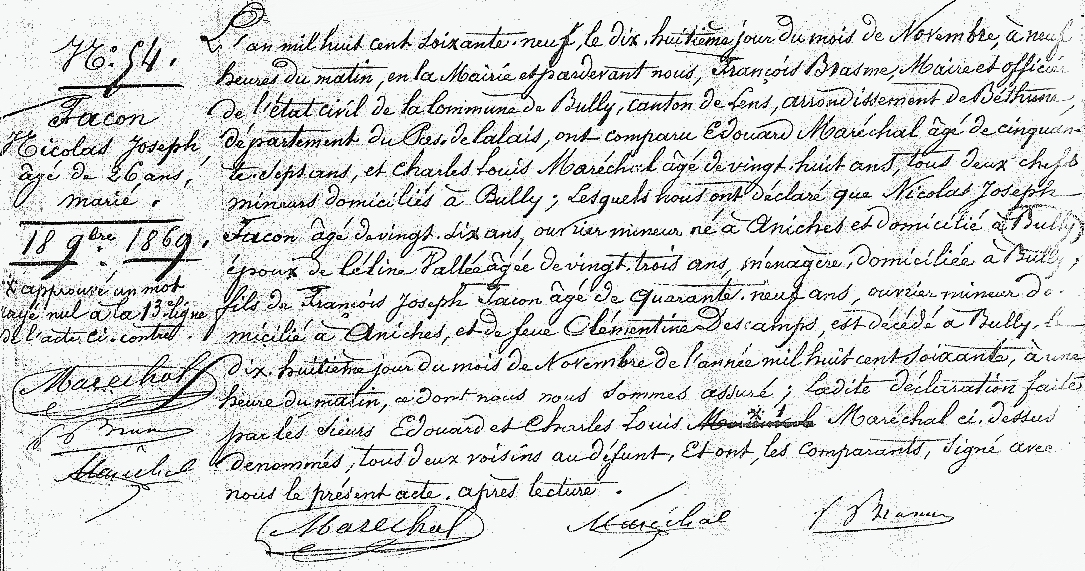 N.º 54.
Facon
Nicolas Joseph,
âgé de 26 ans,
marié.
18 9bre 1869.
X approuvé un mot
rayé nul à la 13e ligne
de l'acte ci-contre.
Maréchal
Maréchal
L'an mil huit cent soixante-neuf, le dix-huitième jour du mois de Novembre, à neuf
heures du matin, en la Mairie et pardevant nous, François Brasme, Maire et officier
de l'état civil de la Commune de Bully, canton de Lens, arrondissement de Béthune,
département du Pas-de-Calais, ont comparu Edouard Maréchal âgé de cinquan-
te-sept ans, et Charles Louis Maréchal âgé de vingt-huit ans, tous deux chefs
mineurs domiciliés à Bully ; Lesquels nous ont déclaré que Nicolas Joseph
Facon âgé de vingt-six ans, ouvrier mineur né à Aniches et domicilié à Bully,
époux de Céline Vallée âgée de vingt-trois ans, ménagère, domiciliée à Bully,
fils de François Joseph Facon âgé de quarante-neuf ans, ouvrier mineur do-
micilié à Aniches, et de feue Clémentine Descamps, est décédé à Bully le
dix-huitième jour du mois de Novembre de l'année mil huit cent soixante, à une
heure du matin, ce dont nous nous sommes assuré ; Ladite déclaration faite
par les sieurs Edouard et Charles Louis X Maréchal ci-dessus
dénommés, tous deux voisins au défunt. Et ont, les comparants, signé avec
nous le présent acte, après lecture.
Maréchal Maréchal